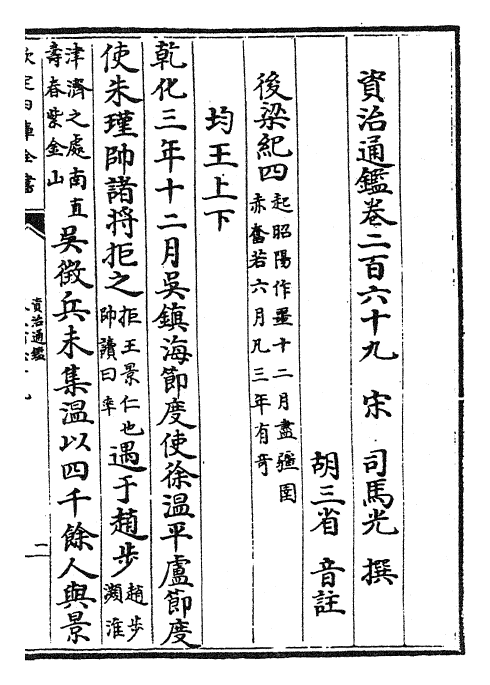 資治通鑑卷二百六十九　宋　司馬光　撰
胡三省　音註
後梁紀四起昭陽作噩十二月盡彊圉赤奮若六月凡三年有奇
均王上下
乾化三年十二月吳鎮海節度使徐溫平盧節度
使朱瑾帥諸將拒之拒王景仁也帥讀曰率遇于趙步趙步瀕淮
津濟之處南直壽春紫金山吳徵兵未集溫以四千餘人與景
欽定四庫全書
資治通鑑
二